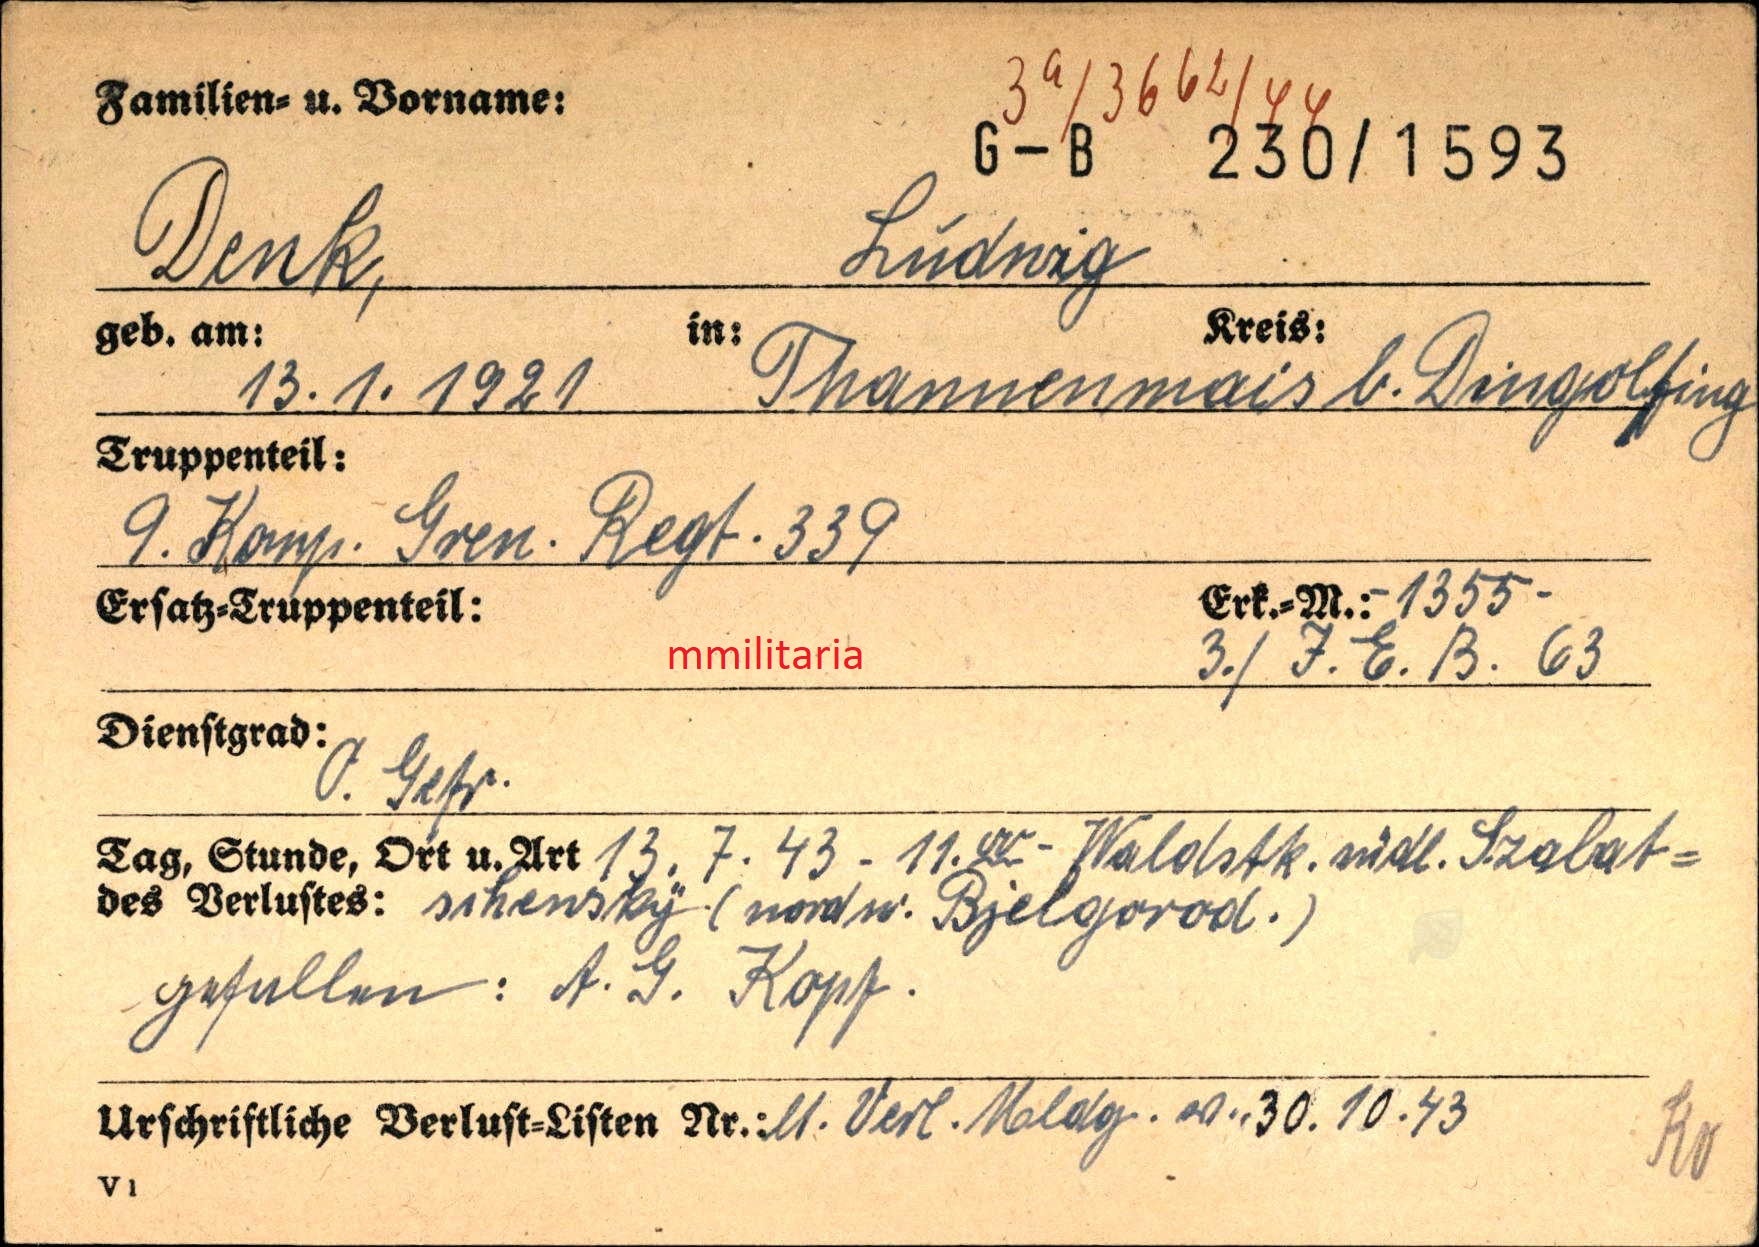 3a/3662/44
Familien- u. Vorname:
G-B 230/1593
Denk, Ludwig
geb. am: in: Kreis:
13. 1. 1921 Thannenmais b. Dingolfing
Truppenteil:
9. Komp. Gren. Regt. 339
Ersatz-Truppenteil: Erk.-M.: -1355-
mmilitaria
3./ J. E. B. 63
Dienstgrad:
O. Gefr.
Tag, Stunde, Ort u. Art 13. 7. 43 - 11.00 - Waldstk. südl. Szabat=
des Verlustes: schensky (nordw. Bjelgorod.)
gefallen: A. G. Kopf.
Urschriftliche Verlust-Listen Nr.: Verl. Meldg. v. 30. 10. 43
V 1